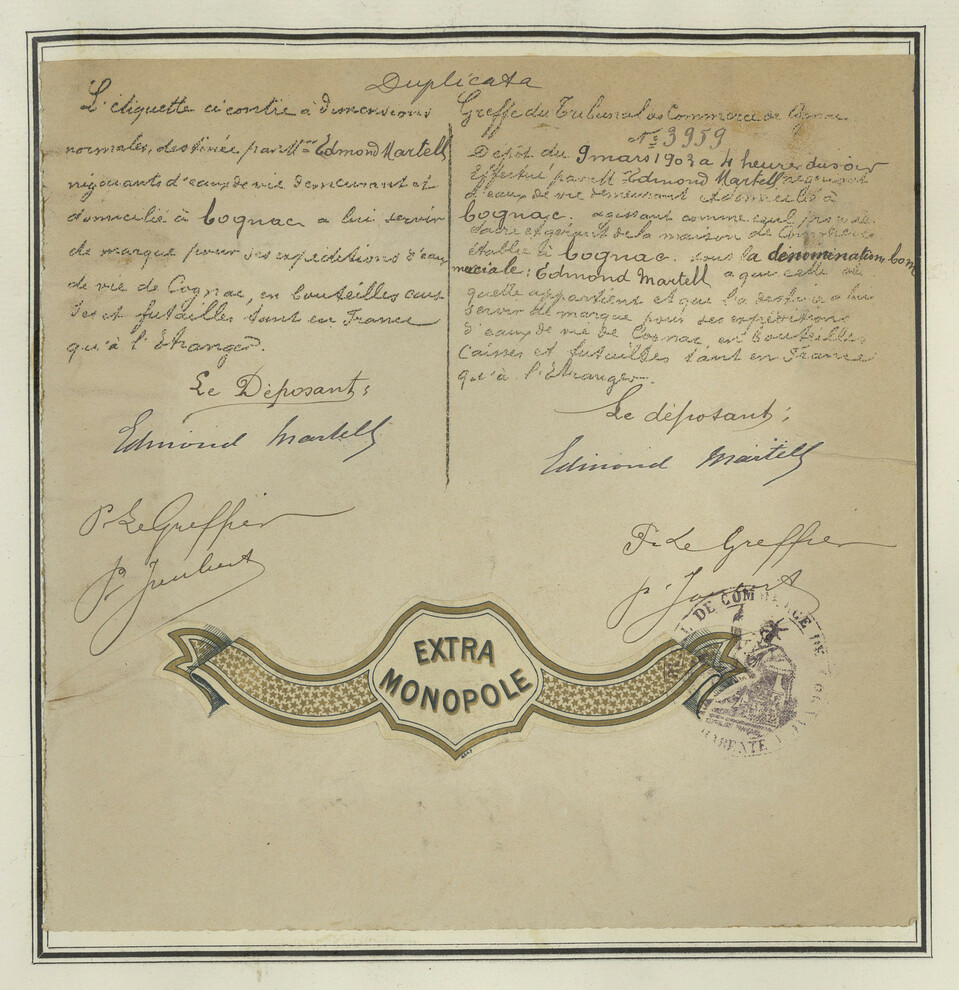 Duplicata
L'étiquette ci contre à dimensions
normales, destinée par Mr Edmond Martell
négociants d'eaux de vie demeurant et
domicilié à Cognac a lui servir
de marque pour ses expéditions d'eaux
de vie de Cognac, en bouteilles cais
ses et futailles tant en France
qu'à l'Etranger.
Le Déposant:
Edmond Martell
P. Le Greffier
Greffe du Tribunal de Commerce de Cognac
No 3959
Dépôt du 9 mars 1903 a 4 heures du soir
Effectué par M Edmond Martell négociant
d'eaux de vie demeurant et domicilié à
Cognac. agissant comme seul
et gérant de la maison de Commerce
établie à Cognac. sous la dénomination Com
merciale: Edmond Martell a que cette éti
quette appartient et que l'a destinée a lui
servir de marque pour ses expéditions
d'eaux de vie de Cognac, en bouteilles
Caisses et futailles tant en France
qu'à l'Etranger.
Le déposant:
Edmond Martell
P. Le Greffier
EXTRA
MONOPOLE
DE COMMERCE DE
CHARENTE